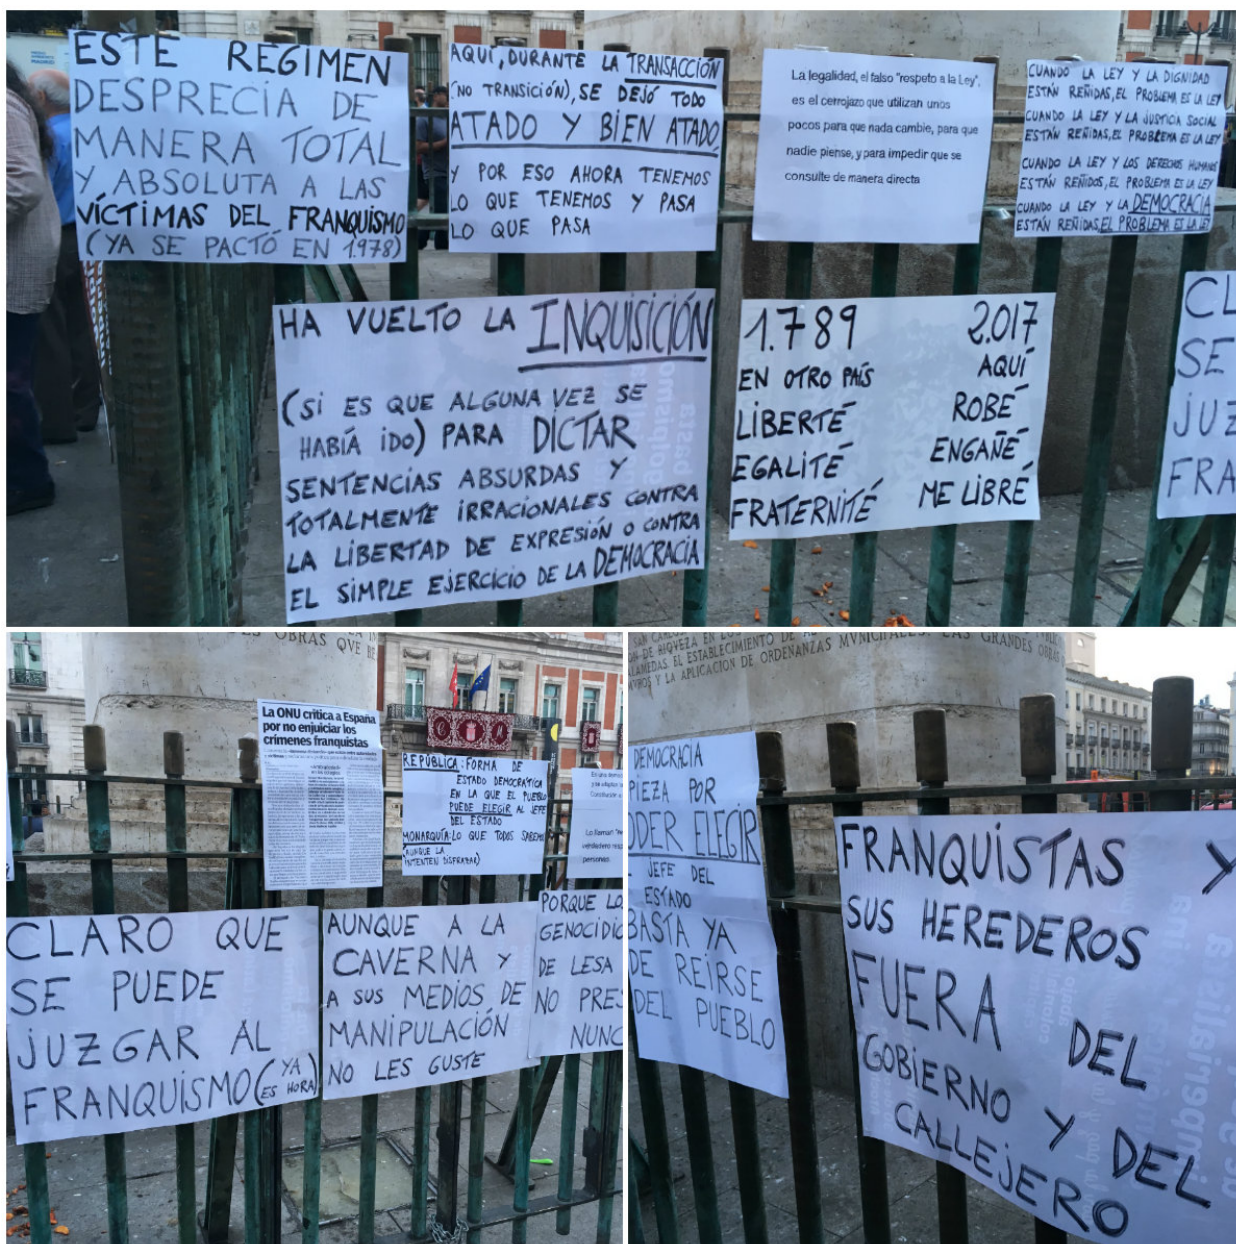 ESTE REGIMEN
DESPRECIA DE
MANERA TOTAL
Y ABSOLUTA A LAS
VÍCTIMAS DEL FRANQUISMO
(YA SE PACTÓ EN 1.978)
AQUÍ, DURANTE LA TRANSACCIÓN
(NO TRANSICIÓN), SE DEJÓ TODO
ATADO Y BIEN ATADO,
Y POR ESO AHORA TENEMOS
LO QUE TENEMOS Y PASA
LO QUE PASA
La legalidad, el falso "respeto a la Ley",
es el cerrojazo que utilizan unos
pocos para que nada cambie, para que
nadie piense, y para impedir que se
consulte de manera directa
CUANDO LA LEY Y LA DIGNIDAD
ESTÁN REÑIDAS, EL PROBLEMA ES LA LEY
CUANDO LA LEY Y LA JUSTICIA SOCIAL
ESTÁN REÑIDAS, EL PROBREMA ES LA LEY
CUANDO LA LEY Y LOS DERECHOS HUMANOS
ESTÁN REÑIDOS, EL PROBLEMA ES LA LEY
CUANDO LA LEY Y LA DEMOCRACIA
ESTÁN REÑIDAS, EL PROBLEMA ES LA LEY
HA VUELTO LA INQUISICIÓN
(SI ES QUE ALGUNA VEZ SE
HABÍA IDO) PARA DICTAR
SENTENCIAS ABSURDAS Y
TOTALMENTE IRRACIONALES CONTRA
LA LIBERTAD DE EXPRESIÓN O CONTRA
EL SIMPLE EJERCICIO DE LA DEMOCRACIA
1.789
EN OTRO PAÍS
LIBERTÉ
EGALITÉ
FRATERNITÉ
2.017
AQUÍ
ROBÉ
ENGAÑÉ
ME LIBRÉ
CL
SE
JUZ
FRA
OBRAS QVE
La ONU critica a España
por no enjuiciar los
crímenes franquistas
REPÚBLICA: FORMA DE
ESTADO DEMOCRÁTICA
EN LA QUE EL PUEBLO
PUEDE ELEGIR AL JEFE
DEL ESTADO
MONARQUÍA: LO QUE TODOS SABEMOS
(AUNQUE LA
INTENTEN DISFRAZAR)
Constitución
personas.
CLARO QUE
SE PUEDE
JUZGAR AL
FRANQUISMO (YA
ES HORA)
AUNQUE A LA
CAVERNA Y
A SUS MEDIOS DE
MANIPULACIÓN
NO LES GUSTE
PORQUE LO
GENOCIDIO
DE LESA
NO PRES
NUNC
DE RIQVEZA EN
EL ESTABLECIMIENTO DE
MVNICIPALES LAS GRANDES OBRAS
Y LA APLICACION DE ORDENANZAS
DEMOCRACIA
PIEZA POR
ODER ELEGIR
JEFE DEL
ESTADO
BASTA YA
DE REIRSE
DEL PUEBLO
FRANQUISTAS Y
SUS HEREDEROS
FUERA DEL
GOBIERNO Y DEL
CALLEJERO